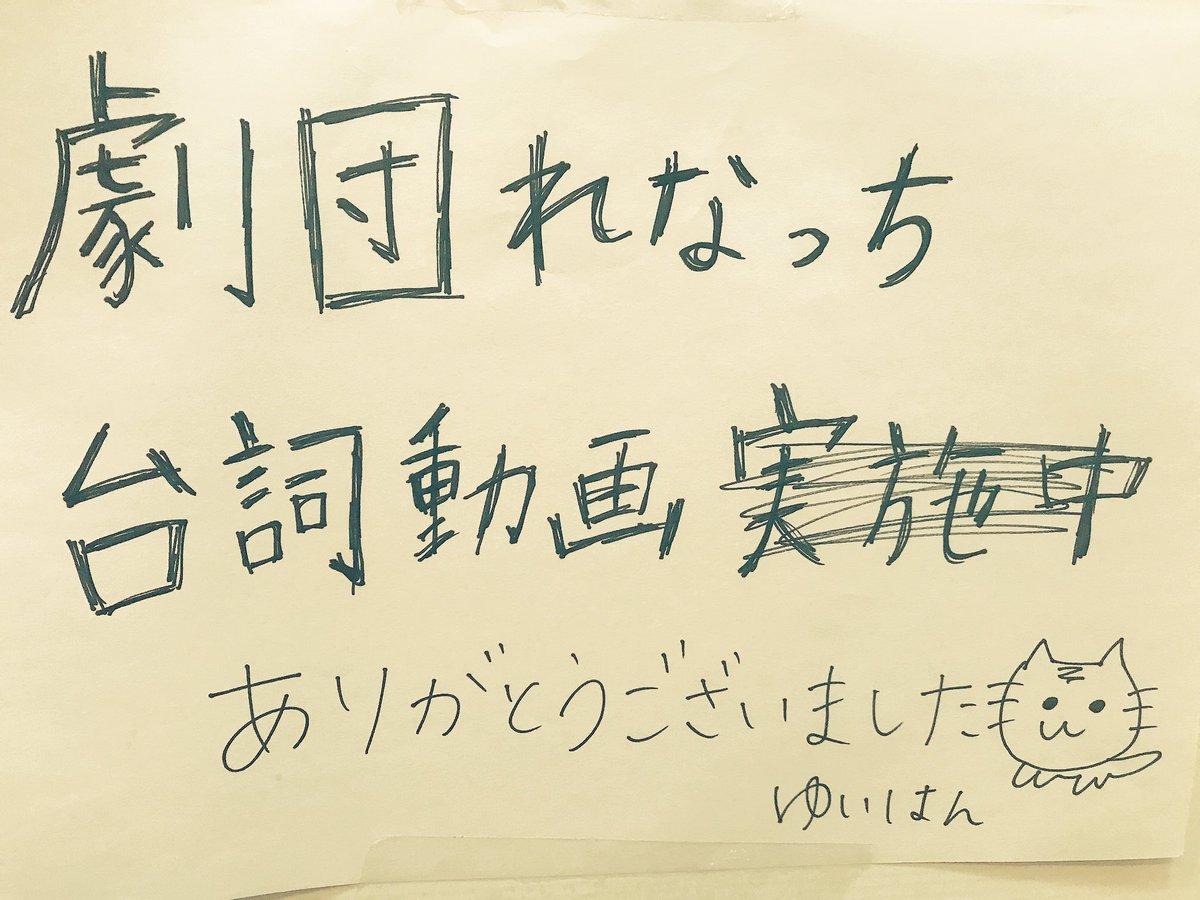 劇団れなっち
台詞動画実施中
ありがとうございました
ゆいはん